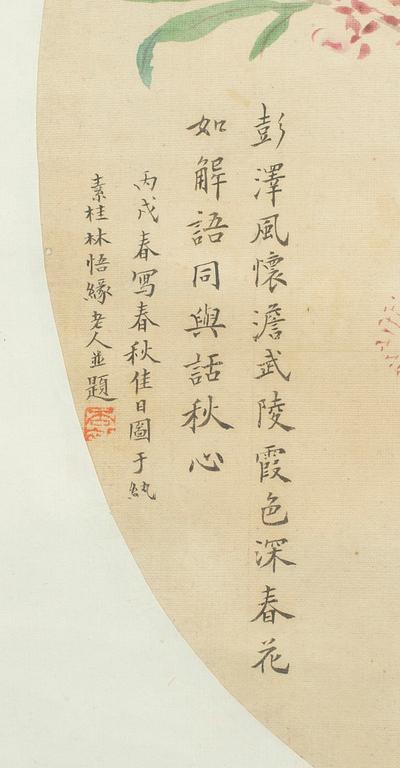 彭澤風懷澹武陵霞色深春花
如解語同與話秋心
丙戌春寫春秋佳日圖于紈
素桂林悟緣老人並題